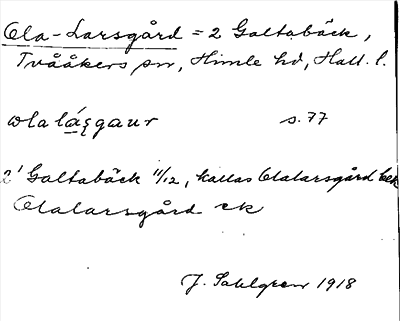 Ola-Larsgård = 2 Galtabäck,
Tvååkers sn, Himle hd, Hall. l.
ωlalásgaur s. 77
2¹ Galtabäck 11/12, kallas Olalarsgård
Olalarsgård
J. Sahlgren 1918